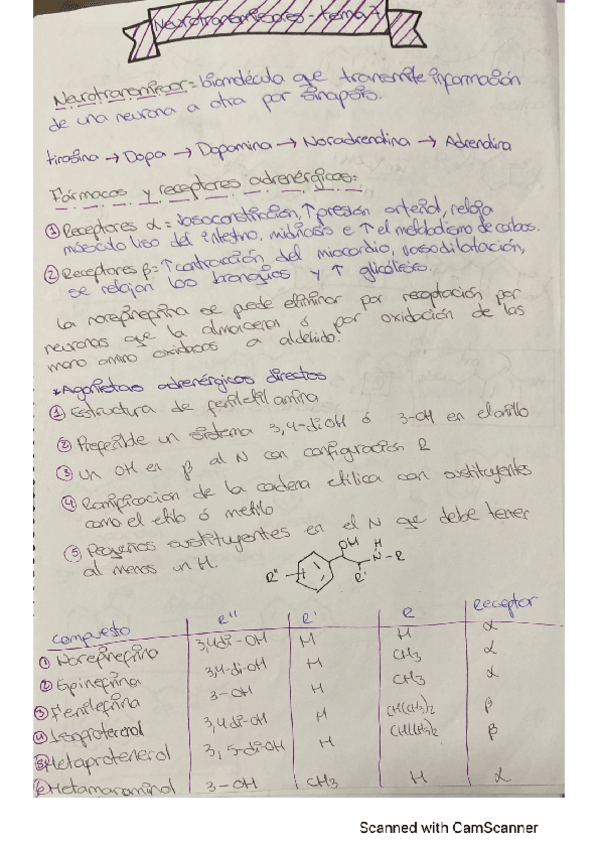 Neurotransmisores - tema 7
Neurotransmisor = biomolécula que transmite información
de una neurona a otra por sinapsis.
tirosina → Dopa → Dopamina → Noradrenalina → Adrenalina
Fármacos y receptores adrenérgicos:
① Receptores α = vasoconstricción, ↑ presión arterial, relaja
músculo liso del intestino, midriasis e ↑ el metabolismo de
② Receptores β = ↑ contracción del miocardio, vasodilatación,
se relajan los bronquios y ↑ glicólisis.
La norepinefrina se puede eliminar por recaptación por
neuronas que la almacenan ó por oxidación de las
mono amino oxidasas a aldehido.
* Agonistas adrenérgicos directos
① Estructura de feniletilamina
② Preferible un sistema 3,4-diOH ó 3-OH en el anillo
③ Un OH en β al N con configuración R
④ Ramificacion de la cadena etílica con sustituyentes
como el etilo ó metilo
⑤ Pequeños sustituyentes en el N que debe tener
al menos un H.
R'' OH H N-R R'
compuesto R'' R' R Receptor
① Norepinefrina 3,4di-OH H H α
② Epinefrina 3,4-di-OH H CH3 α
③ Fenilefrina 3-OH H CH3 α
④ Isoproterenol 3,4di-OH H CH(CH3)2 β
⑤ Metaproterenol 3,5-diOH H CH(CH3)2 β
⑥ Metamaraminol 3-OH CH3 H α
Scanned with CamScanner